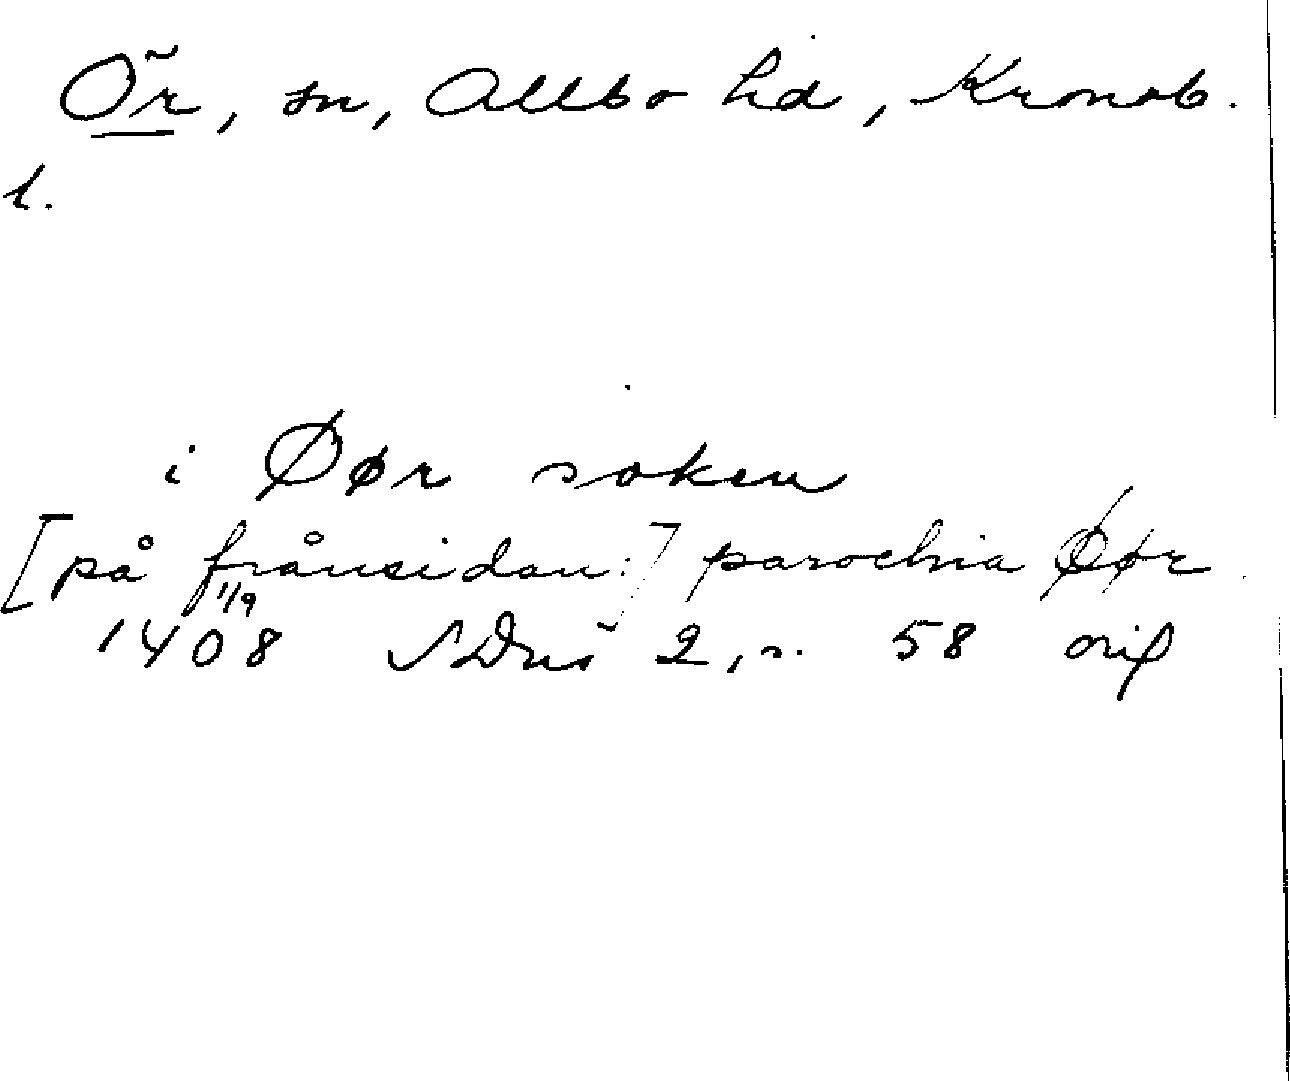 Ör, sn, Allbo hd, Kronob.
l.
i Øør soken
[på frånsidan:] parochia Øør
1408 1/9 SDns 2, s. 58 orig